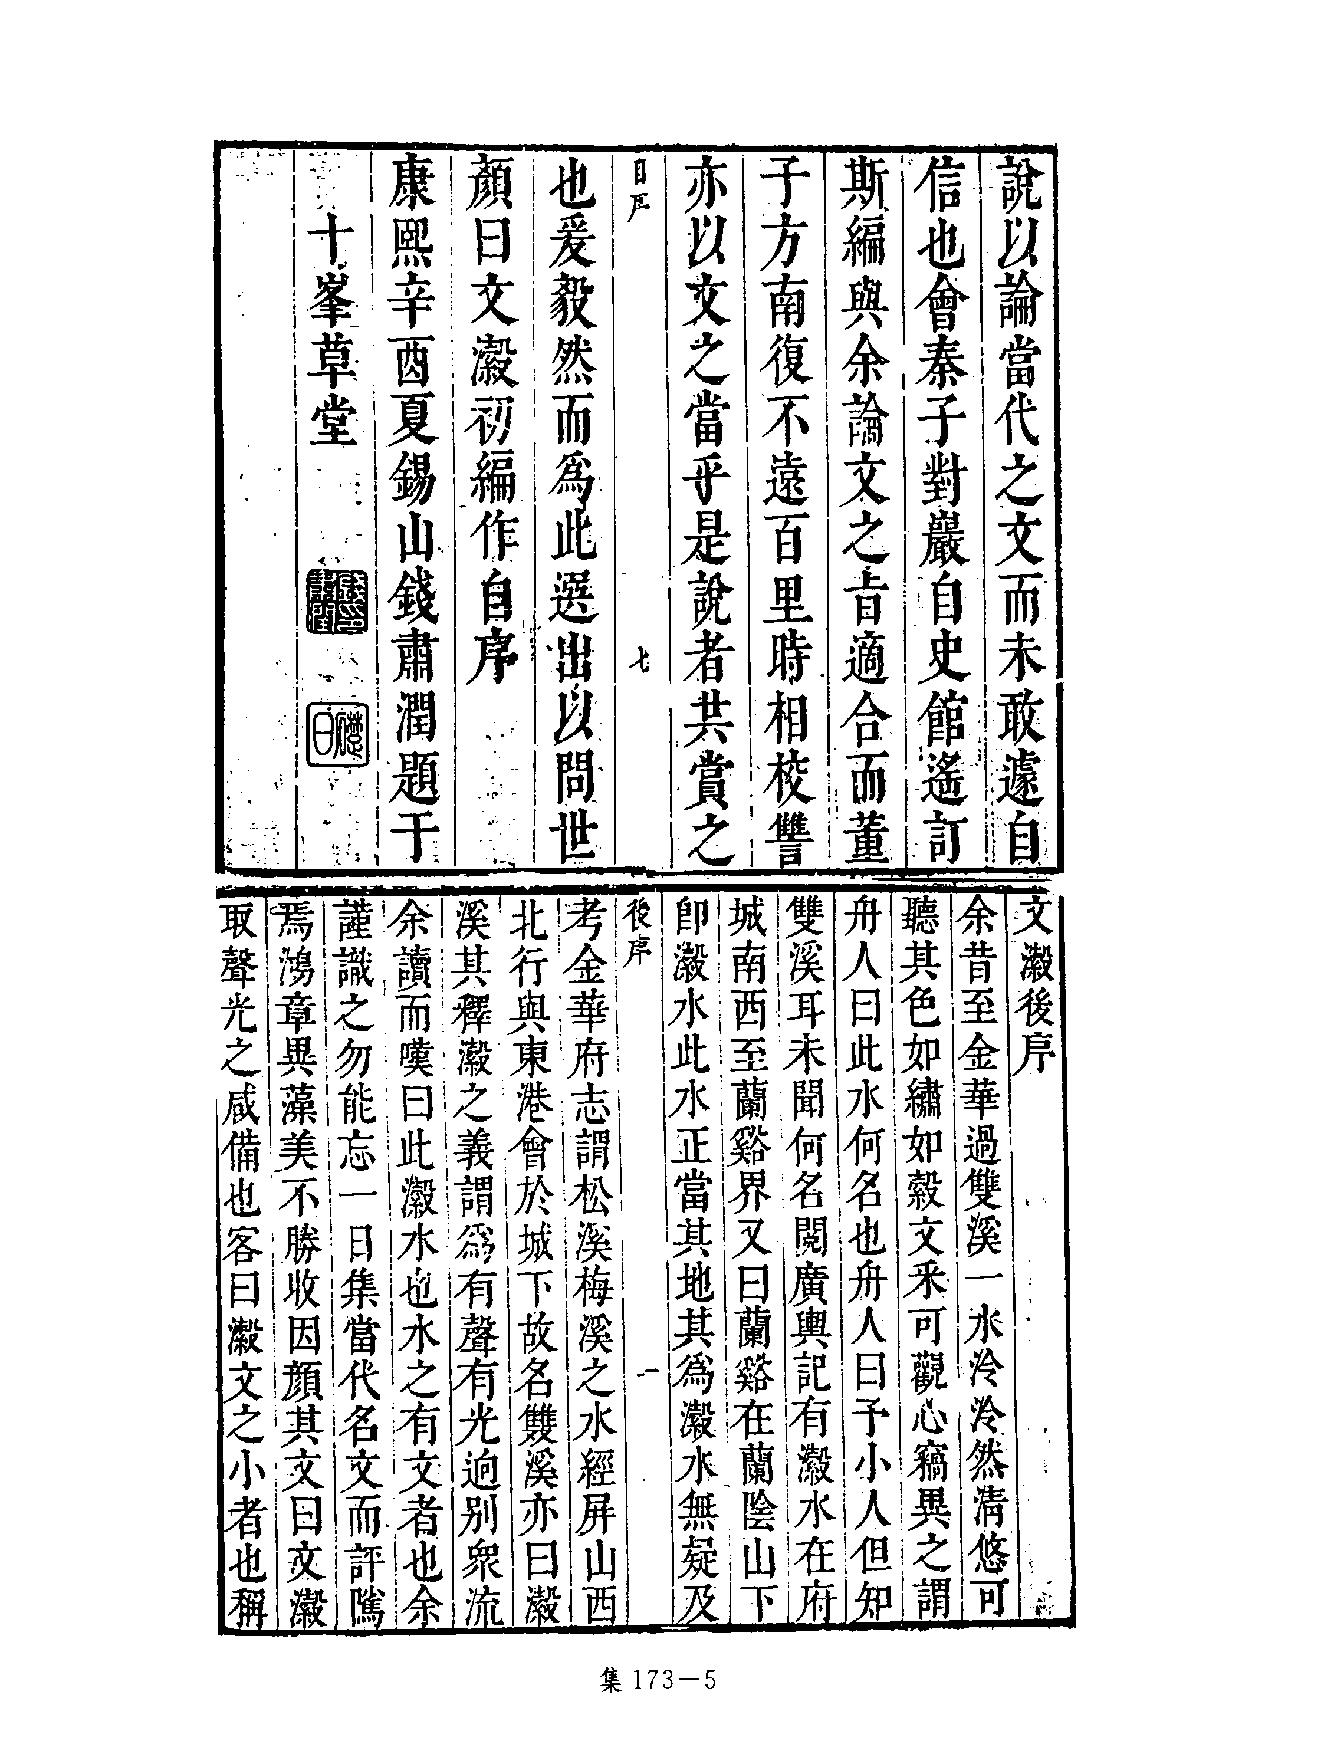 說以論當代之文而未敢遽自
信也會秦子對巖自史館遙訂
斯編與余論文之旨適合而董
子方南復不遠百里時相校讐
亦以文之當乎是說者共賞之
自序 七
也爰毅然而爲此選出以問世
顏曰文瀫初編作自序
康熙辛酉夏錫山錢肅潤題于
十峯草堂
礎日
文瀫後序
余昔至金華過雙溪一水泠泠然清悠可
聽其色如繡如縠文釆可觀心竊異之謂
舟人曰此水何名也舟人曰予小人但知
雙溪耳未聞何名閱廣輿記有瀫水在府
城南西至蘭谿界又曰蘭谿在蘭陰山下
卽瀫水此水正當其地其爲瀫水無疑及
後序 一
考金華府志謂松溪梅溪之水經屏山西
北行與東港會於城下故名雙溪亦曰瀫
溪其釋瀫之義謂爲有聲有光迥别衆流
余讀而嘆曰此瀫水也水之有文者也余
謹識之勿能忘一日集當代名文而評隲
焉鴻章異藻美不勝收因顏其文曰文瀫
取聲光之咸備也客曰瀫文之小者也稱
集 173－5